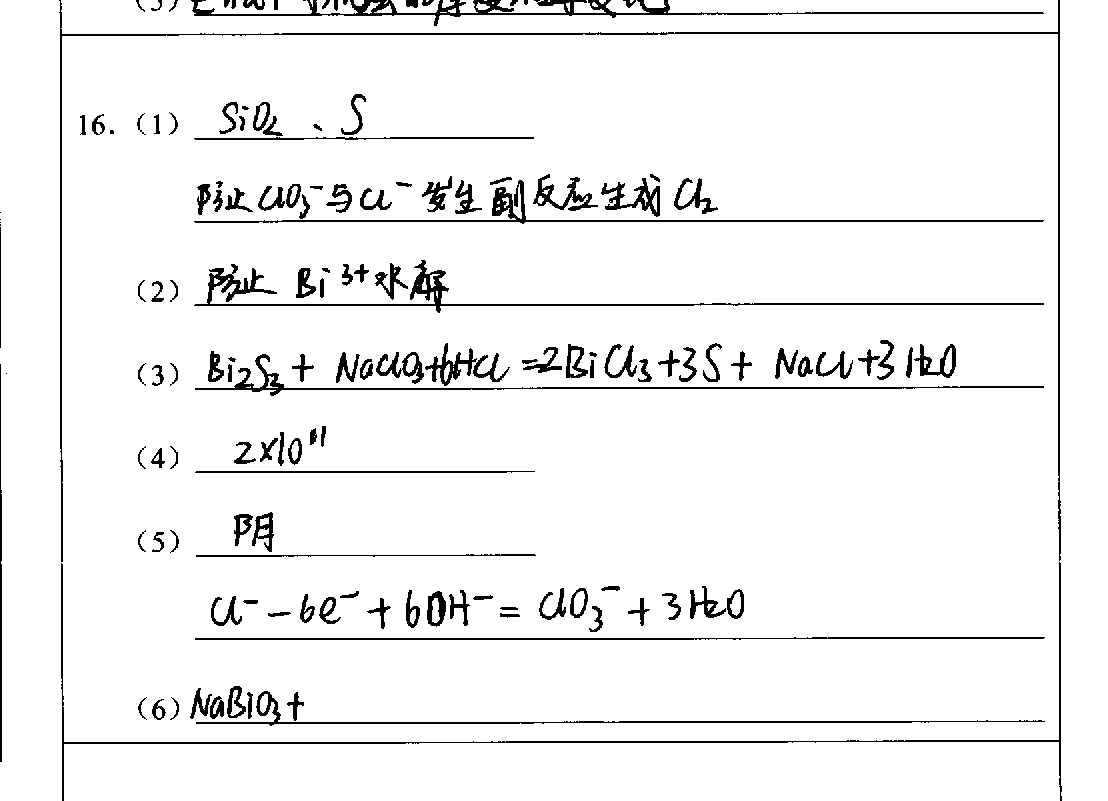 16. (1) SiO₂、S
防止ClO₃⁻与Cl⁻发生副反应生成Cl₂
(2) 防止 Bi³⁺水解
(3) Bi₂S₃ + NaClO₃+6HCl =2BiCl₃+3S + NaCl+3H₂O
(4) 2×10¹¹
(5) 阴
Cl⁻ - 6e⁻ + 6OH⁻ = ClO₃⁻ + 3H₂O
(6) NaBiO₃+